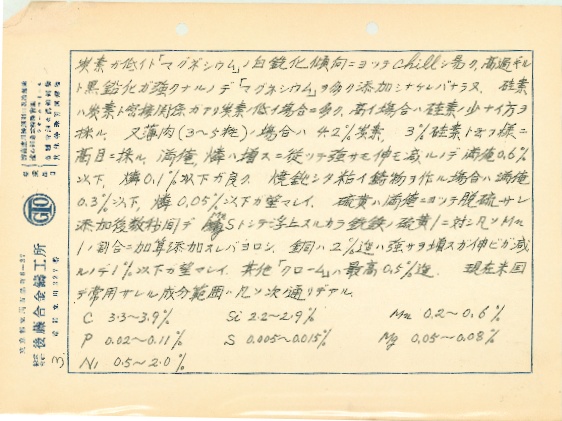 炭素が低イト「マグネシウム」ノ白銑化傾向ニヨッテ chill シ易ク、高過ギルト
黒鉛化ガ強クナルノデ「マグネシウム」ヲ多ク添加シナケレバナラヌ 硅素
ハ炭素ト密接関係ガアリ炭素低イ場合ハ多ク、高イ場合ハ硅素ハ少ナイ方ヲ
採ル、又薄肉(3〜5粍)ノ場合ハ 4.2% 炭素、3% 硅素トスル様ニ
高目ニ採ル、満俺、燐ハ増スニ従ッテ強サモ伸モ減ルノデ 満俺 0.6%
以下、燐 0.1% 以下ガ良ク、焼鈍シタ粘イ鋳物ヲ作ル場合ハ満俺
0.3% 以下、燐 0.05% 以下ガ望マシイ、硫黄ハ満俺ニヨッテ脱硫サレ
添加後数秒間デ MgSトシテ浮上スルカラ銑鉄ノ硫黄1ニ対シ凡ソMg
1ノ割合ニ加算添加スレバヨロシ、銅ハ 2% 迄ハ強サヲ増スガ伸ビガ減
ルノデ 1% 以下ガ望マシイ、其他「クローム」ハ最高 0.5% 迄、現在米国
デ常用サレル成分範囲ハ凡ソ次ノ通リデアル、
C 3.3〜3.9% Si 2.2〜2.9% Mn 0.2〜0.6%
P 0.02〜0.11% S 0.005〜0.015% Mg 0.05〜0.08%
Ni 0.5〜2.0%
GTO
後藤合金鑄工所
3.